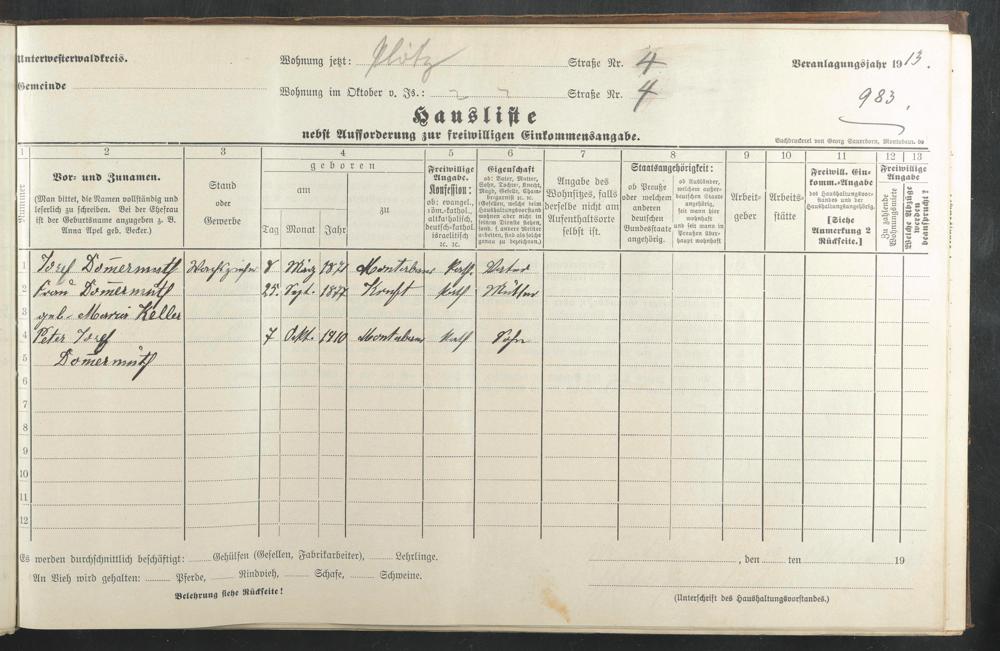 Unterwesterwaldkreis.
Wohnung jetzt: Plötz Straße Nr. 4
Veranlagungsjahr 1913.
Gemeinde
Wohnung im Oktober v. Js.: Straße Nr. 4
983.
Hausliste
nebst Aufforderung zur freiwilligen Einkommensangabe.
Buchdruckerei von Georg Sauerborn, Montabaur.
1 2 3 4 5 6 7 8 9 10 11 12 13
Nummer
Vor- und Zunamen.
(Man bittet, die Namen vollständig und
leserlich zu schreiben. Bei der Ehefrau
ist der Geburtsname anzugeben z. B.
Anna Apel geb. Becker.)
Stand
oder
Gewerbe
geboren
am
zu
Tag Monat Jahr
Freiwillige
Angabe.
Konfession:
ob: evangel.,
röm.-kathol.,
altkatholisch,
deutsch-kathol.
israelitisch
ꝛc. ꝛc.
Eigenschaft
ob: Vater, Mutter,
Sohn, Tochter, Knecht,
Magd, Geselle, Cham-
bergarnist ꝛc. ꝛc.
(Gesellen, welche beim
Haushaltungsvorstand
wohnen aber nicht in
seinem Dienste stehen,
sond. f. andere Meister
arbeiten, sind als solche
genau zu bezeichnen.)
Angabe des
Wohnsitzes, falls
derselbe nicht am
Aufenthaltsorte
selbst ist.
Staatsangehörigkeit:
ob Preuße
oder welchem
anderen
deutschen
Bundesstaate
angehörig.
ob Ausländer,
welchem außer-
deutschen Staate
angehörig,
seit wann hier
wohnhaft
und seit wann in
Preußen über-
haupt wohnhaft
Arbeit-
geber
Arbeits-
stätte
Freiwill. Ein-
komm.-Angabe
des Haushaltungsvor-
standes und der
Haushaltungsangehörig.
[Siehe
Anmerkung 2
Rückseite.]
Freiwillige
Angabe
Zu zahlende
Wohnungsmiete
Welche Abzüge
werden
beansprucht?
1 Josef Domermuth Wachszieher 8 März 1871 Montabaur kath. Vater
2 Frau Domermuth 25. Sept. 1877 kath Mutter
3 geb. Maria Keller
4 Peter Josef 7 Okt. 1910 Montabaur kath Sohn
5 Domermuth
6
7
8
9
10
11
12
Es werden durchschnittlich beschäftigt: Gehülfen (Gesellen, Fabrikarbeiter), Lehrlinge.
, den ten 19
An Vieh wird gehalten: Pferde, Rindvieh, Schafe, Schweine.
Belehrung siehe Rückseite!
(Unterschrift des Haushaltungsvorstandes.)